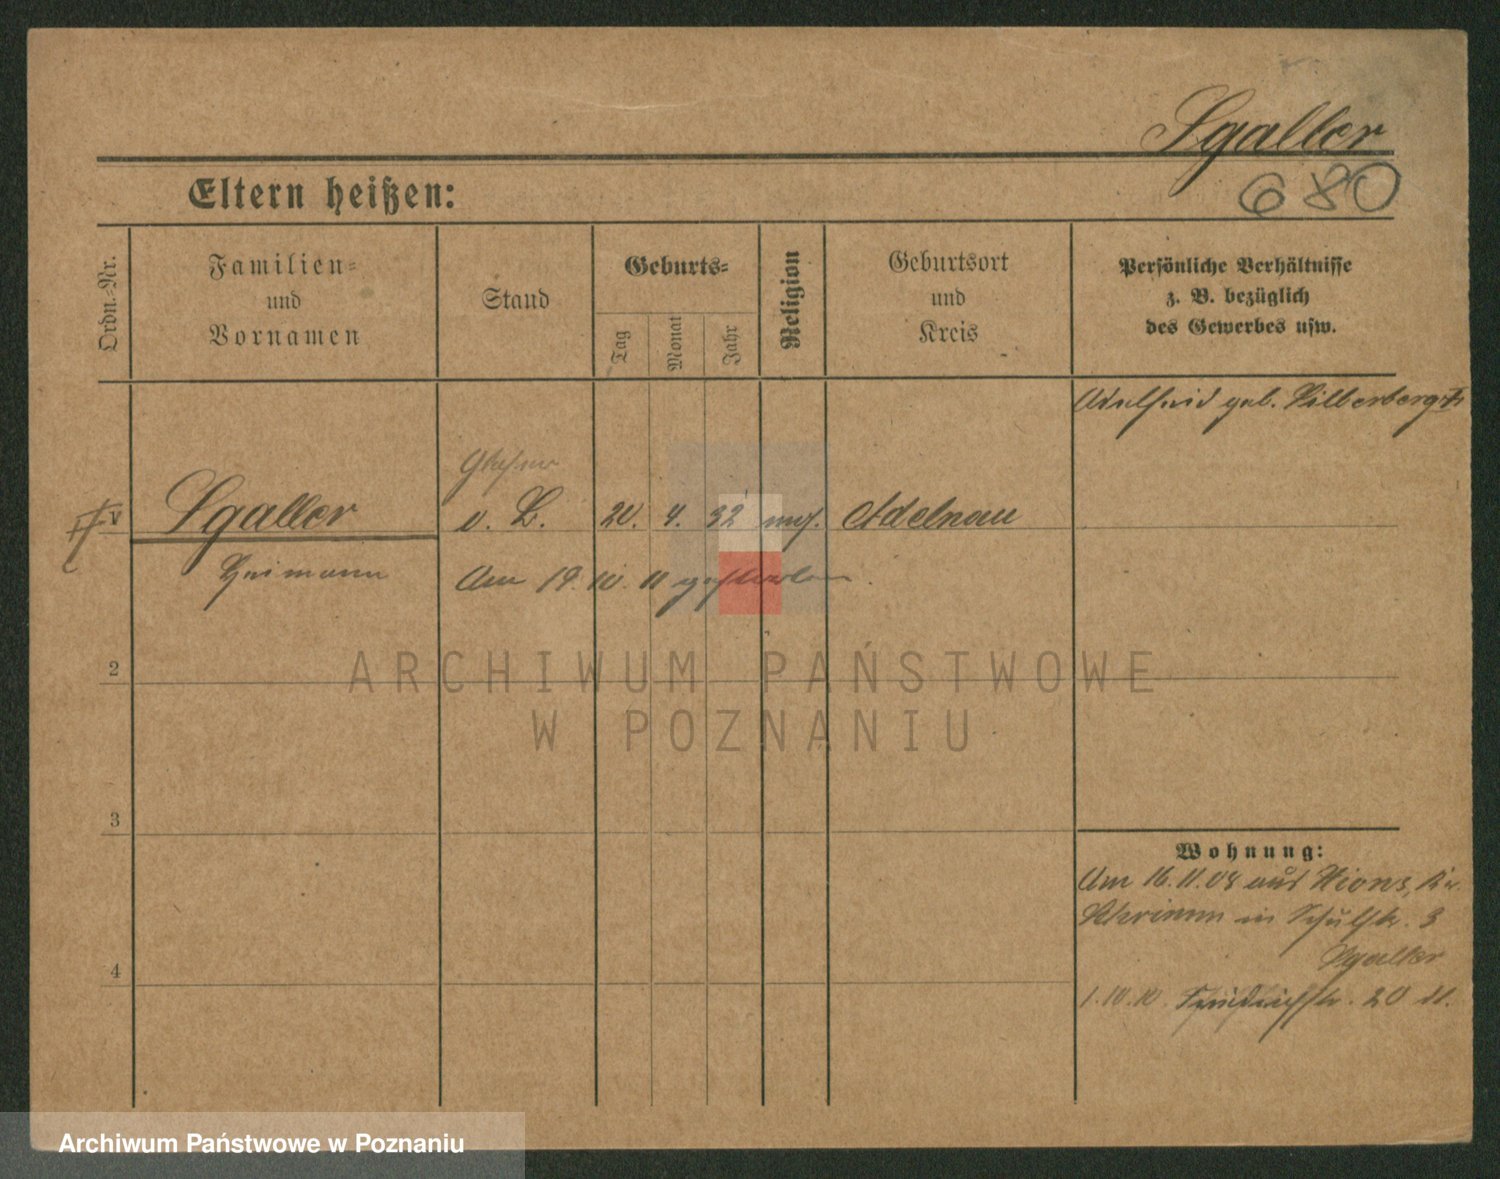 Sgaller
680
Eltern heißen:
Ordn.-Nr.
Familien=
und
Vornamen
Stand
Geburts=
Tag
Monat
Jahr
Religion
Geburtsort
und
Kreis
Persönliche Verhältnisse
z. B. bezüglich
des Gewerbes usw.
Adelheid geb. Silberberg
Glaser
Sgaller v. L. 20. 4. 32 mos. Adelnau
Heimann Am 19. 10. 11 gestorben.
2
3
4
ARCHIWUM PAŃSTWOWE
W POZNANIU
Wohnung:
Am 16.11.08 aus Xions, Kr.
Schrimm in Schulstr. 3
Sgaller
1.10.10 Friedrichstr. 20 II.
Archiwum Państwowe w Poznaniu